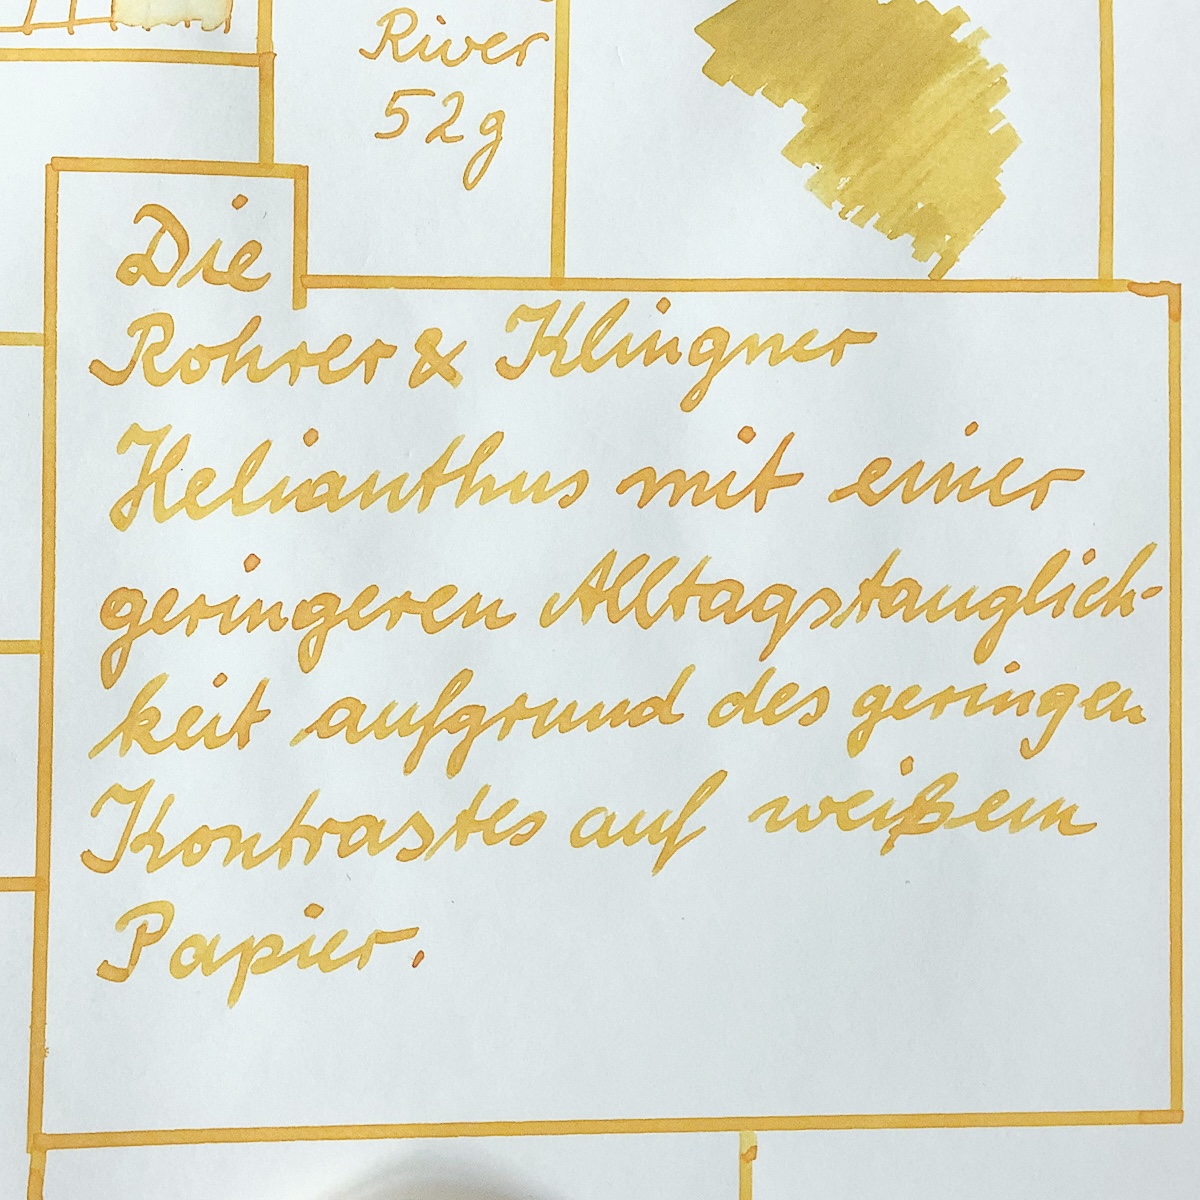 River
52g
Die
Rohrer & Klingner
Helianthus mit einer
geringeren Alltagstauglich-
keit aufgrund des geringen
Kontrastes auf weißem
Papier.